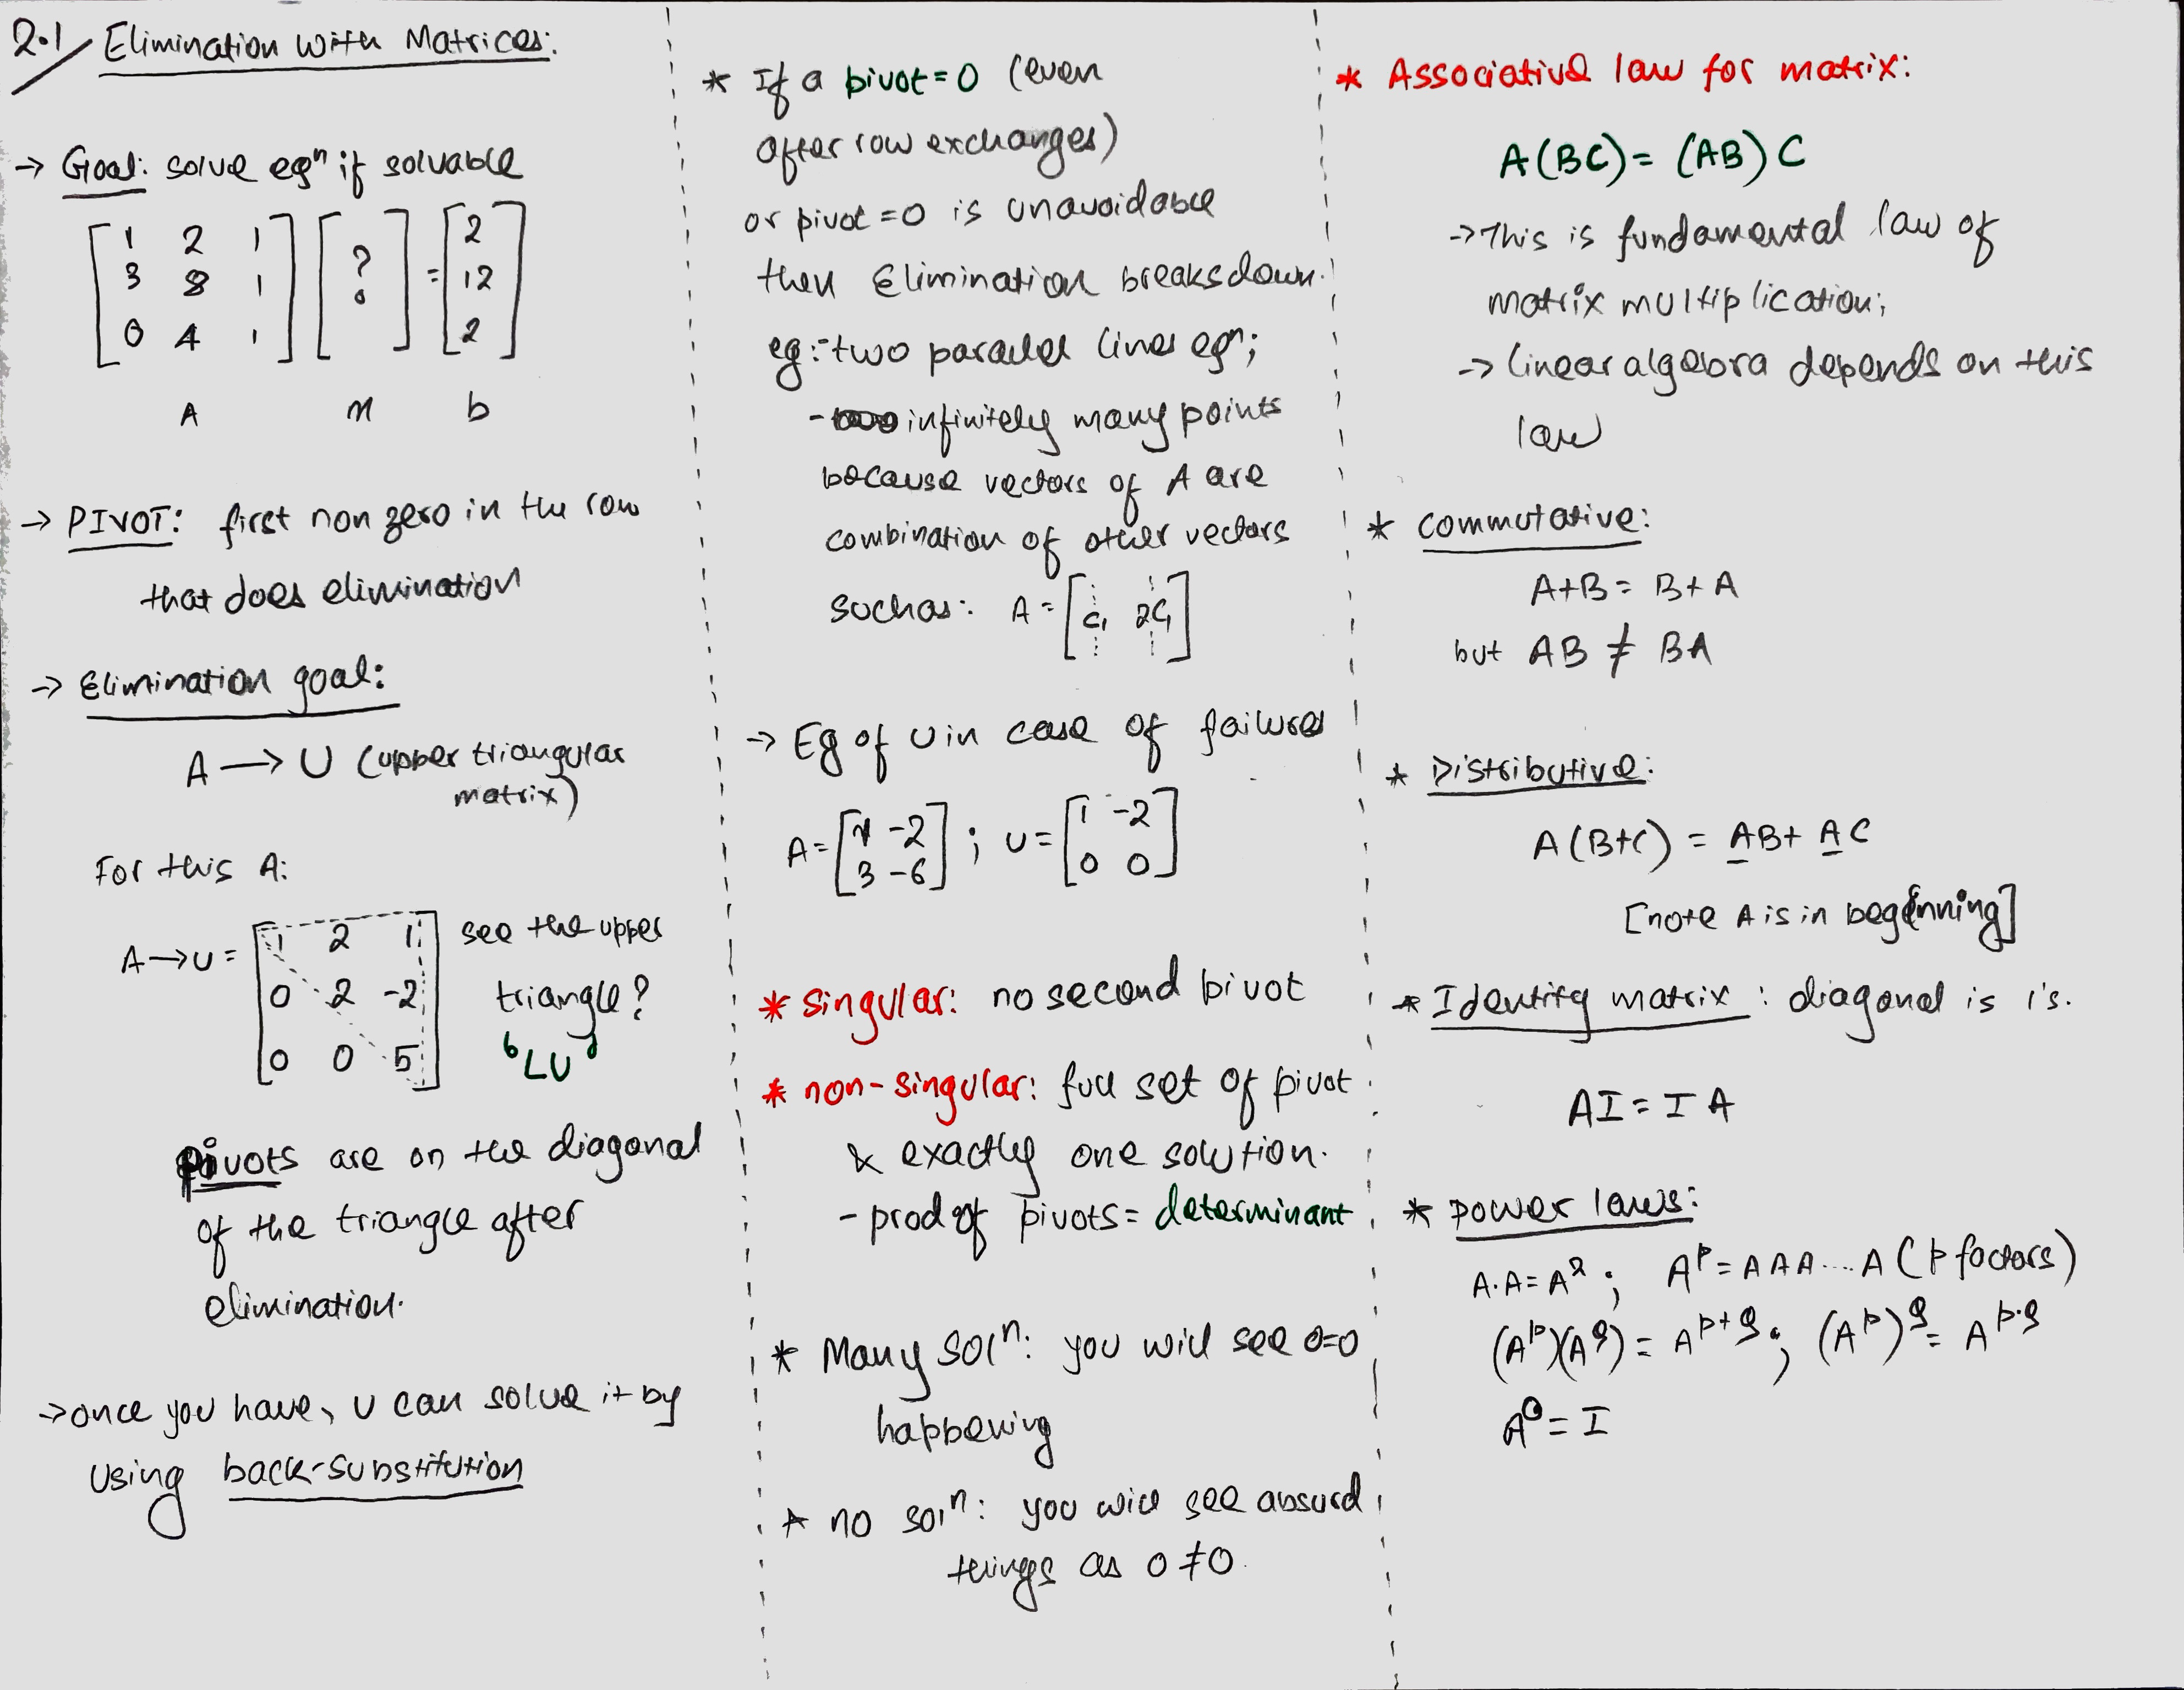 2.1/ Elimination with Matrices:
→ Goal: solve eqⁿ if solvable
[1 2 1] [ ] [2]
[3 8 1] [?] = [12]
[0 4 1] [ ] [2]
A x b
→ PIVOT: first non zero in the row
that does elimination
→ Elimination goal:
A → U (upper triangular
matrix)
For this A:
A→U = [1 2 1] see the upper
[0 2 -2] triangle?
[0 0 5] 'LU'
pivots are on the diagonal
of the triangle after
elimination.
→ once you have, U can solve it by
using back-substitution
* If a pivot = 0 (even
after row exchanges)
or pivot = 0 is unavoidable
then Elimination breaksdown.
eg:- two parallel lines eqⁿ;
- infinitely many points
because vectors of A are
combination of other vectors
such as: A = [C₁ 2C₁]
→ Eg of U in case of failures
A = [1 -2] ; U = [1 -2]
[3 -6] [0 0]
* singular: no second pivot
* non-singular: full set of pivot
& exactly one solution.
- prod of pivots = determinant
* Many solⁿ: you will see 0=0
happening
* no solⁿ: you will see absurd
things as 0 ≠ 0.
* Associative law for matrix:
A(BC) = (AB)C
→ This is fundamental law of
matrix multiplication;
→ linear algebra depends on this
law
* commutative:
A+B = B+A
but AB ≠ BA
* Distributive:
A(B+C) = AB + AC
[note A is in beginning]
* Identity matrix: diagonal is 1's.
AI = IA
* power laws:
A.A = A²; Aᵖ = AAA....A (p factors)
(Aᵖ)(A^q) = A^p+q; (Aᵖ)^q = A^p.q
A⁰ = I